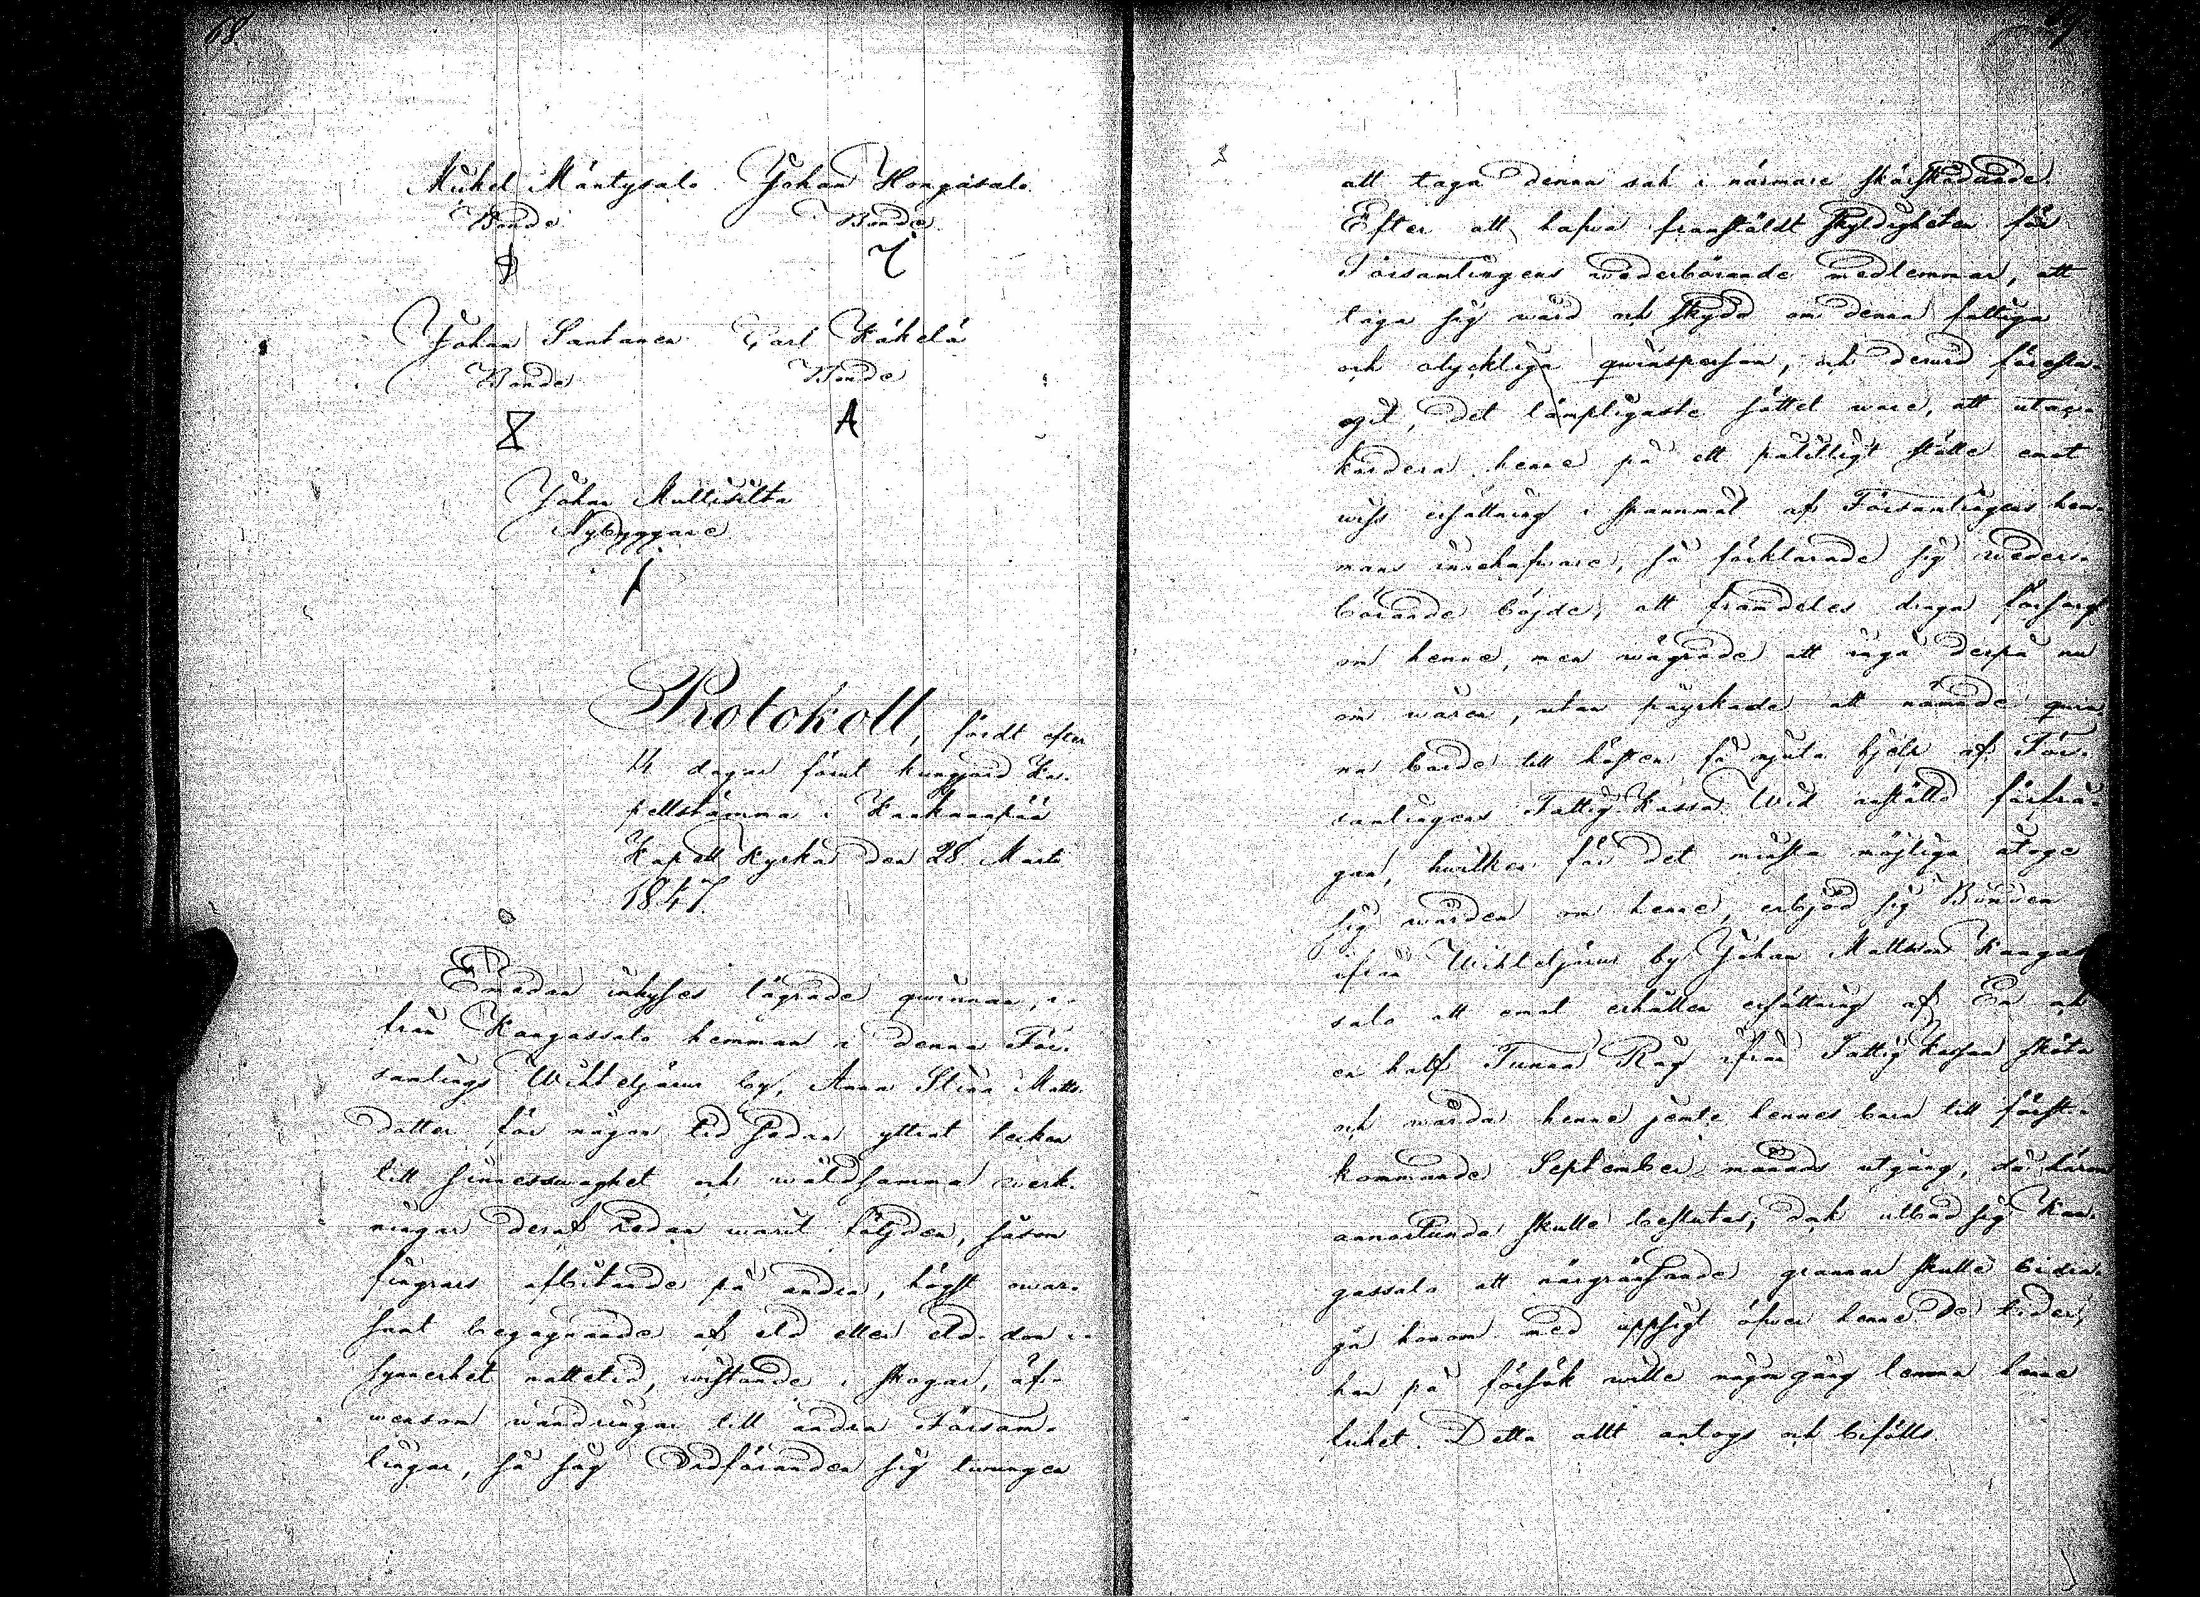 68.
Mickel Mäntysalo Johan Hongasalo.
Bonde Bonde
Johan Santanen Carl Käkelä
Bonde Bonde
A
Johan Multisilta
Nybyggare
Protokoll, fördt efter
14 dagar förut kungjord Ka-
pellstämma i Kankaanpää
Kapell Kyrka den 28 Martii
1847.
Emedan inhyses lägrade qvinnan, i-
från Kangassalo hemman i denna För-
samlings Wihteljärvi by, Anna Stina Matts-
dotter för någon tid sedan yttrat tecken
till sinnessvaghet och våldsamma verk-
ningar deraf redan warit följden, såsom
fingrars afbitande på andra, högst owar-
samt begagnande af eld eller eld-don i
synnerhet nattetid, wistande i skogar, äf-
wensom wandringar till andra Försam-
lingar, så såg Ordföranden sig twungen
69.
att taga denna sak i närmare skärskådande.
Efter att hafwa framställdt skyldigheten för
Församlingens wederbörande medlemmar, att
taga sig wård och skydd om denna fattiga
och olyckliga qvinsperson, och derwid föresla-
git, det lämpligaste sättet ware, att utac-
kordera henne på ett pålitligt ställe emot
wiss ersättning i spannmål af Församlingens hem-
mans innehafware, så förklarade sig weder-
börande böjde, att framdeles draga försorg
om henne, men wägrade att ingå derpå nu
om wåren, utan påyrkade att nämnde qvin-
na borde till hösten få njuta hjelp af För-
samlingens Fattig Kassa. Wid anställd förfrå-
gan, hwilken för det minsta möjliga åtoge
sig wården om henne, erbjöd sig Bonden
ifrån Wihteljärwi by Johan Mattsson Kangas-
salo att emot erhållen ersättning af En och
en half Tunna Råg ifrån Fattig Kassan sköta
och wårda henne jemte hennes barn till först-
kommande September månads utgång, då härom
annorlunda skulle beslutas; dock utbad sig Kan-
gassalo att närgränsande grannar skulle bidra-
ga honom med uppsigt öfwer henne de tider,
han på försök wille någon gång lemna henne
lucket. Detta allt antogs och bifölls.